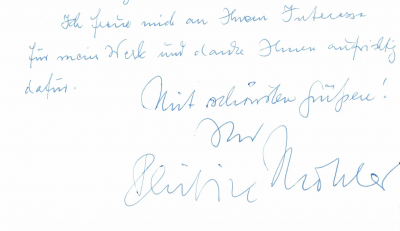 Ich freue mich an Ihrem Interesse
für mein Werk und danke Ihnen aufrichtig
dafür.
Mit schönsten Grüßen!
Ihr